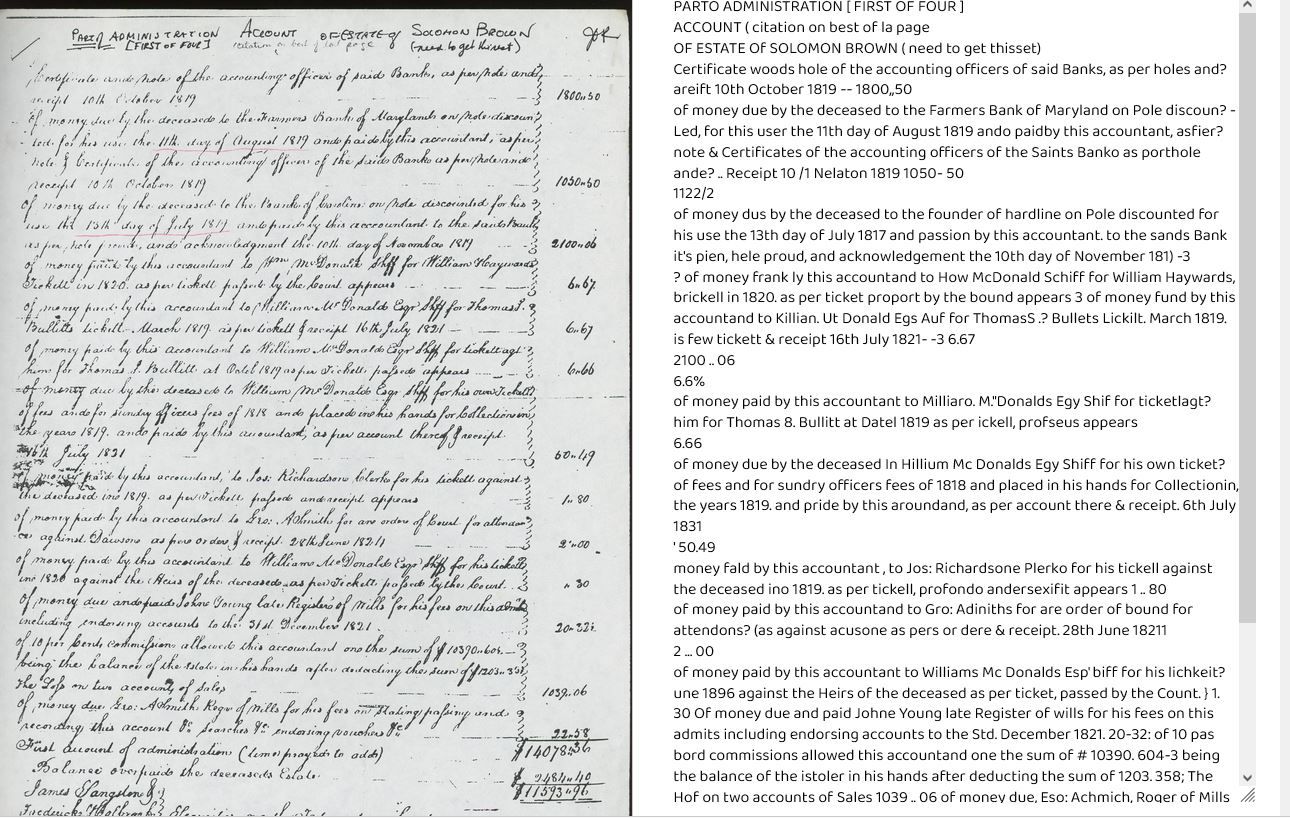 PART OF ADMINISTRATION ACCOUNT OF ESTATE OF SOLOMON BROWN
[FIRST OF FOUR] citation on best of last page (need to get this set)
Certificate and note of the accounting officer of said Bank, as per note and
receipt 10th October 1819 1800,,50
of money due by the deceased to the Farmers Bank of Maryland on note discoun
ted for his use the 11th day of August 1819 and paid by this accountant, as per
note & Certificate of the accounting officer of the said Bank as per note and
receipt 10th October 1819 1050,,50
of money due by the deceased to the Bank of Caroline on note discounted for his
use the 13th day of July 1819 and paid by this accountant to the said Bank
as per note proved, and acknowledgment the 10th day of November 1819 2100,,06
of money paid by this accountant to Wm McDonald Shff for William Haywards
Tickett in 1820. as per tickett passed by the Court appears 6,,67
of money paid by this accountant to William McDonald Esqr Shff for Thomas J.
Bullitts tickett March 1819. as per tickett & receipt 16th July 1821 6,,67
of money paid by this Accountant to William McDonald Esqr Shff for tickett agt
him for Thomas J. Bullitt at Octel 1819 as per Tickett passed appears 6,,66
of money due by the deceased to William McDonald Esqr Shff for his own Tickett
of fees and for sundry officers fees of 1818 and placed in his hands for Collection in
the years 1819. and paid by this accountant, as per account thereof & receipt.
16th July 1821 50,,49
of money paid by this accountant, to Jos: Richardson Clerk for his tickett against
the deceased in 1819. as per Tickett passed and receipt appears 1,,80
of money paid by this accountant to Geo: A Smith for an order of Court for attendan
ce against Dawson as per order & receipt. 28th June 1821 2,,00
of money paid by this accountant to William McDonald Esqr Shff for his tickett
in 1820 against the Heirs of the deceased as per Tickett passed by the Court ,,30
of money due and paid John Young late Register of Wills for his fees on this admn
including endorsing accounts to the 31st December 1821. 20,,32
of 10 per Cents commission allowed this accountant on the sum of $10390,,60
being the balance of the estate in his hands after deducting the sum of $1203,,35
the Loss on two accounts of Sales 1039,,06
of money due Geo: A Smith Regr of Wills for his fees on Stating passing and
recording this account &c Searches &c endorsing vouchers &c 22,,58
First account of administration (time prayed to add) $14078,,36
Balance overpaid the deceaseds Estate. $2484,,40
James Sangston $11593,,96
PARTO ADMINISTRATION [ FIRST OF FOUR ]
ACCOUNT ( citation on best of la page
OF ESTATE OF SOLOMON BROWN ( need to get thisset)
Certificate woods hole of the accounting officers of said Banks, as per holes and?
areift 10th October 1819 -- 1800,,50
of money due by the deceased to the Farmers Bank of Maryland on Pole discoun? -
Led, for this user the 11th day of August 1819 ando paidby this accountant, asfier?
note & Certificates of the accounting officers of the Saints Banko as porthole
ande? .. Receipt 10 /1 Nelaton 1819 1050- 50
1122/2
of money dus by the deceased to the founder of hardline on Pole discounted for
his use the 13th day of July 1817 and passion by this accountant. to the sands Bank
it's pien, hele proud, and acknowledgement the 10th day of November 181) -3
? of money frank ly this accountant to How McDonald Schiff for William Haywards,
brickell in 1820. as per ticket proport by the bound appears 3 of money fund by this
accountand to Killian. Ut Donald Egs Auf for ThomasS .? Bullets Lickilt. March 1819.
is few tickett & receipt 16th July 1821- -3 6.67
2100 .. 06
6.6%
of money paid by this accountant to Milliaro. M."Donalds Egy Shif for ticketlagt?
him for Thomas 8. Bullitt at Datel 1819 as per ickell, profseus appears
6.66
of money due by the deceased In Hillium Mc Donalds Egy Shiff for his own ticket?
of fees and for sundry officers fees of 1818 and placed in his hands for Collectionin,
the years 1819. and pride by this aroundand, as per account there & receipt. 6th July
1831
' 50.49
money fald by this accountant , to Jos: Richardsone Plerko for his tickell against
the deceased ino 1819. as per tickell, profondo andersexifit appears 1 .. 80
of money paid by this accountand to Gro: Adiniths for are order of bound for
attendons? (as against acusone as pers or dere & receipt. 28th June 18211
2 ... 00
of money paid by this accountant to Williams Mc Donalds Esp' biff for his lichkeit?
une 1896 against the Heirs of the deceased as per ticket, passed by the Count. } 1.
30 Of money due and paid Johne Young late Register of wills for his fees on this
admits including endorsing accounts to the Std. December 1821. 20-32: of 10 pas
bord commissions allowed this accountand one the sum of # 10390. 604-3 being
the balance of the istoler in his hands after deducting the sum of 1203. 358; The
Hof on two accounts of Sales 1039 .. 06 of money due, Eso: Achmich, Roger of Mills